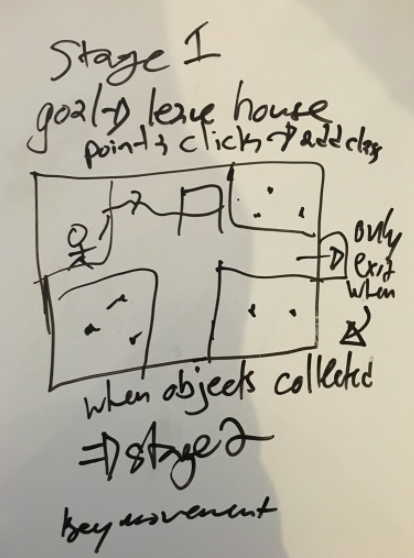 Stage I
goal → leave house
point & click → add class
only
exit
when
when objects collected
⇒ stage 2
key movement